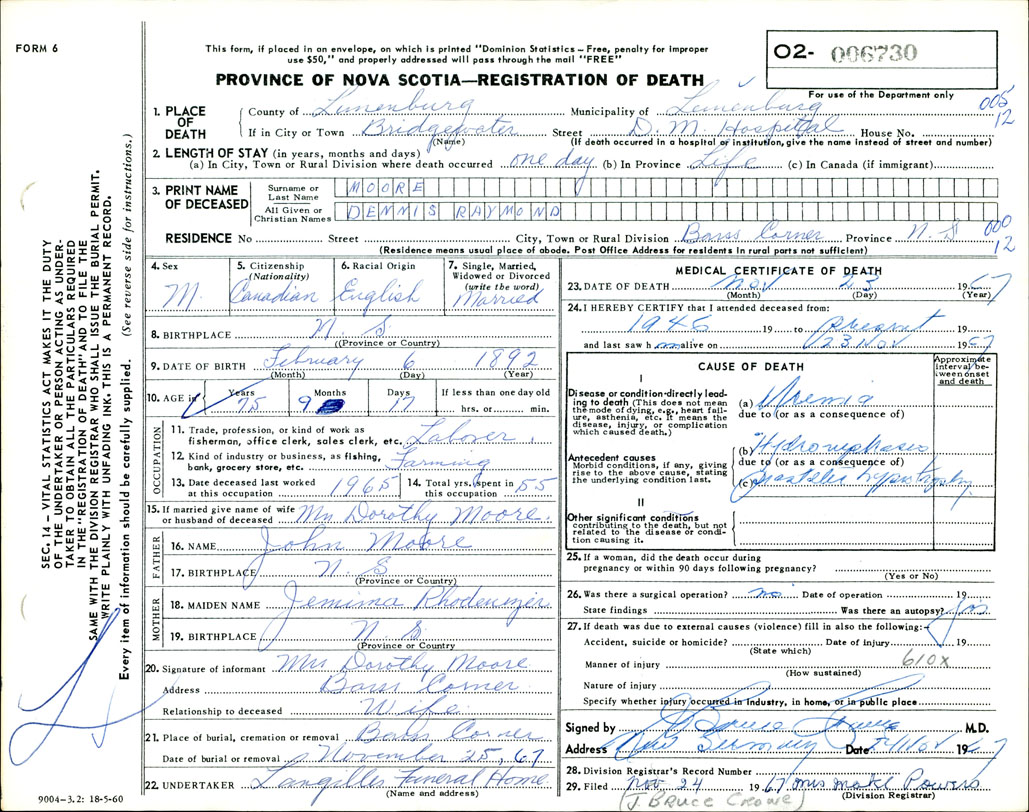 FORM 6
This form, if placed in an envelope, on which is printed "Dominion Statistics – Free, penalty for improper
use $50," and properly addressed will pass through the mail "FREE"
PROVINCE OF NOVA SCOTIA—REGISTRATION OF DEATH
O2- 006730
For use of the Department only
005
12
1. PLACE OF DEATH
County of Lunenburg Municipality of Lunenburg
If in City or Town Bridgewater Street D. M. Hospital House No.
(Name) (If death occurred in a hospital or institution, give the name instead of street and number)
2. LENGTH OF STAY (in years, months and days)
(a) In City, Town or Rural Division where death occurred one day (b) In Province Life (c) In Canada (if immigrant)
3. PRINT NAME OF DECEASED
Surname or Last Name MOORE
All Given or Christian Names DENNIS RAYMOND
RESIDENCE No Street City, Town or Rural Division Barss Corner Province N. S
000
12
(Residence means usual place of abode. Post Office Address for residents in rural parts not sufficient)
4. Sex M.
5. Citizenship (Nationality) Canadian
6. Racial Origin English
7. Single, Married, Widowed or Divorced (write the word) Married
8. BIRTHPLACE N. S.
(Province or Country)
9. DATE OF BIRTH February 6 1892
(Month) (Day) (Year)
10. AGE in Years 75 Months 9 Days 17 If less than one day old hrs. or min.
OCCUPATION
11. Trade, profession, or kind of work as
fisherman, office clerk, sales clerk, etc. Laborer
12. Kind of industry or business, as fishing,
bank, grocery store, etc. Farming
13. Date deceased last worked at this occupation 1965
14. Total yrs. spent in this occupation 55
15. If married give name of wife or husband of deceased Mrs Dorothy Moore
FATHER
16. NAME John Moore
17. BIRTHPLACE N. S
(Province or Country)
MOTHER
18. MAIDEN NAME Jemima Rhodenizer
19. BIRTHPLACE N. S.
(Province or Country)
20. Signature of informant Mrs Dorothy Moore
Address Barss Corner
Relationship to deceased Wife
21. Place of burial, cremation or removal Barss Corner
Date of burial or removal November 25, 67
22. UNDERTAKER Langilles Funeral Home
(Name and address)
MEDICAL CERTIFICATE OF DEATH
23. DATE OF DEATH Nov 23 1967
(Month) (Day) (Year)
24. I HEREBY CERTIFY that I attended deceased from:
1946 19 to Present 19
and last saw h alive on 23 Nov 1967
CAUSE OF DEATH
Approximate interval between onset and death
I
Disease or condition-directly leading to death (This does not mean the mode of dying, e.g., heart failure, asthenia, etc. It means the disease, injury, or complication which caused death.)
(a) Uremia
due to (or as a consequence of)
Antecedent causes
Morbid conditions, if any, giving rise to the above cause, stating the underlying condition last.
(b) Hydronephrosis
due to (or as a consequence of)
(c) Prostatic hypertrophy
II
Other significant conditions
contributing to the death, but not related to the disease or condition causing it.
25. If a woman, did the death occur during
pregnancy or within 90 days following pregnancy?
(Yes or No)
26. Was there a surgical operation? no Date of operation 19
State findings Was there an autopsy?
27. If death was due to external causes (violence) fill in also the following:
Accident, suicide or homicide? Date of injury 19
(State which)
610X
Manner of injury
(How sustained)
Nature of injury
Specify whether injury occurred in industry, in home, or in public place
Signed by J Bruce Crowe M.D.
Address New Germany Date 24 Nov 1967
28. Division Registrar's Record Number
29. Filed Nov 24 1967 Powers
(Division Registrar)
(J. BRUCE CROWE)
SEC. 14 – VITAL STATISTICS ACT MAKES IT THE DUTY
OF THE UNDERTAKER OR PERSON ACTING AS UNDER-
TAKER TO OBTAIN ALL THE PARTICULARS REQUIRED
IN THE "REGISTRATION OF DEATH" AND TO FILE THE
SAME WITH THE DIVISION REGISTRAR WHO SHALL ISSUE THE BURIAL PERMIT.
WRITE PLAINLY WITH UNFADING INK. THIS IS A PERMANENT RECORD.
Every item of information should be carefully supplied. (See reverse side for instructions.)
9004-3.2: 18-5-60